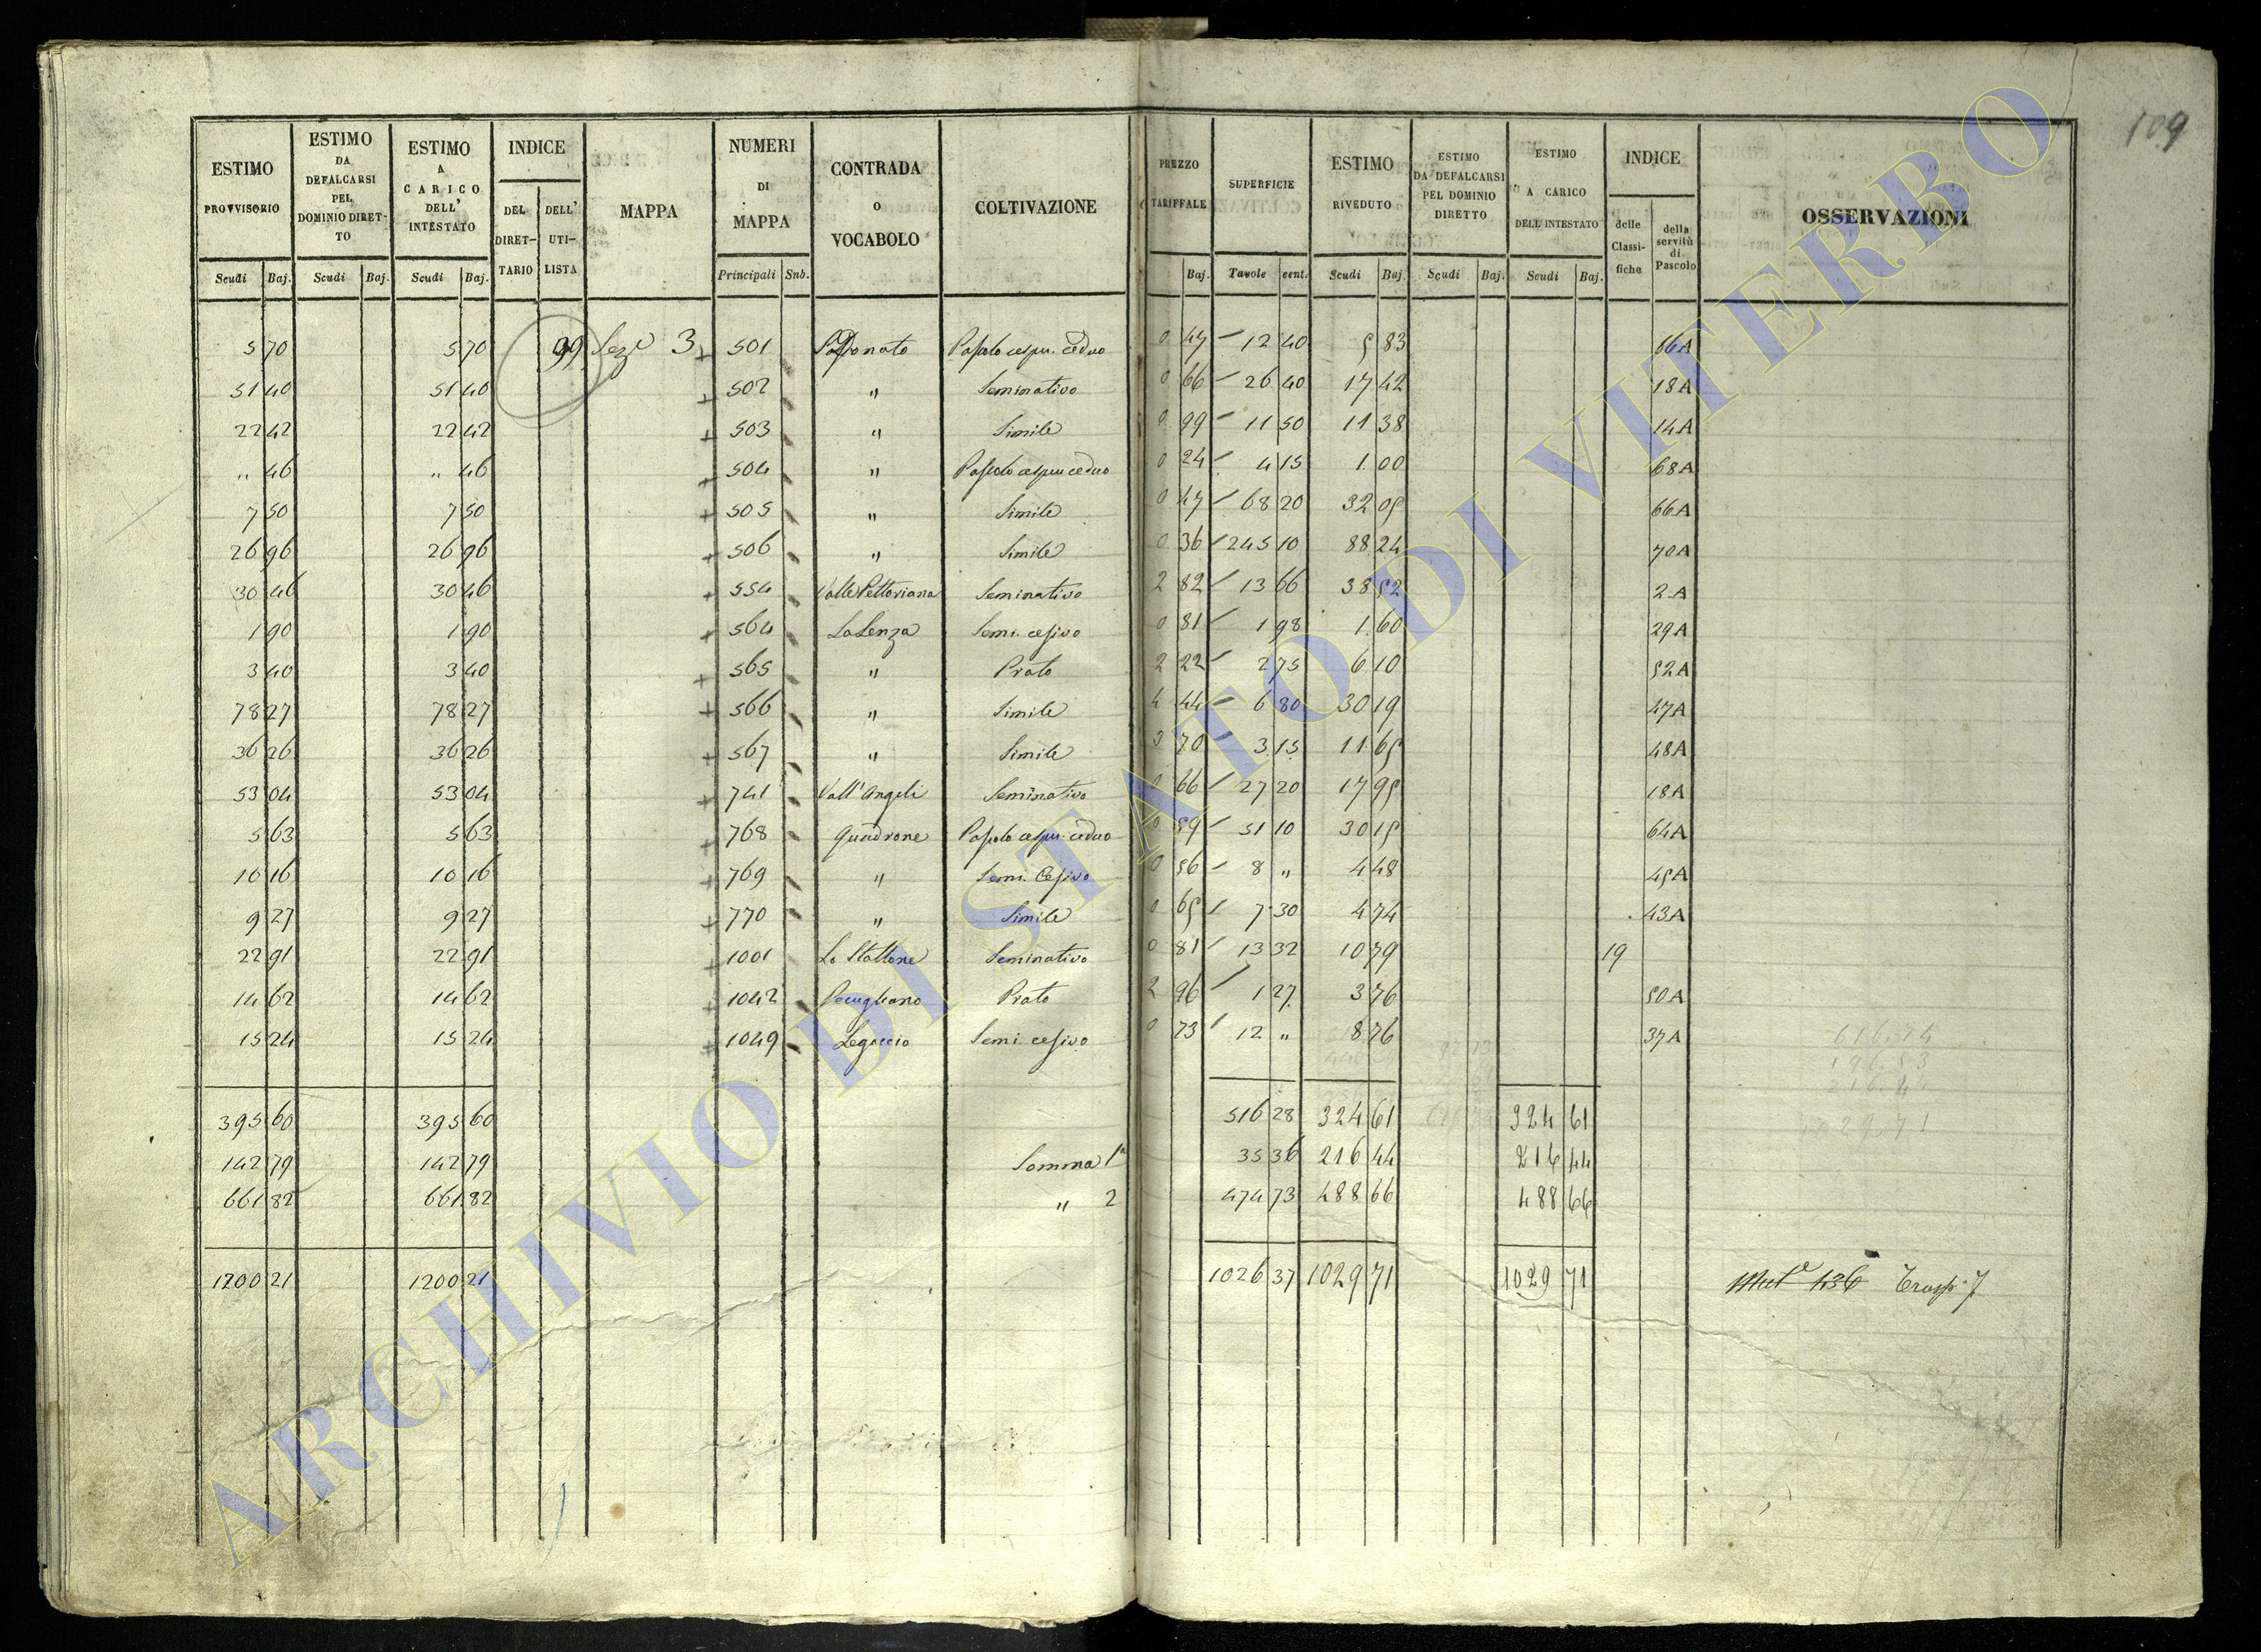 109
ESTIMO PROVVISORIO | ESTIMO DA DEFALCARSI PEL DOMINIO DIRETTO | ESTIMO A CARICO DELL' INTESTATO | INDICE | MAPPA | NUMERI DI MAPPA | CONTRADA O VOCABOLO | COLTIVAZIONE | PREZZO TARIFFALE | SUPERFICIE | ESTIMO RIVEDUTO | ESTIMO DA DEFALCARSI PEL DOMINIO DIRETTO | ESTIMO A CARICO DELL'INTESTATO | INDICE | OSSERVAZIONI
DEL DIRETTARIO | DELL' UTILISTA | delle Classifiche | della servitù di Pascolo
Scudi | Baj. | Scudi | Baj. | Scudi | Baj. | Principali | Snb. | Baj. | Tavole | cent. | Scudi | Baj. | Scudi | Baj. | Scudi | Baj.
5 70 | 5 70 | 99 | Sez.e 3 | 501 | S. Donato | Pascolo cespu. ceduo | 0 47 | 12 40 | 5 83 | 66A
51 40 | 51 40 | 502 | " | Seminativo | 0 66 | 26 40 | 17 42 | 18A
22 42 | 22 42 | 503 | " | Simile | 0 99 | 11 50 | 11 38 | 14A
" 46 | " 46 | 504 | " | Pascolo cespu ceduo | 0 24 | 4 15 | 1 00 | 68A
7 50 | 7 50 | 505 | " | Simile | 0 47 | 68 20 | 32 05 | 66A
26 96 | 26 96 | 506 | " | Simile | 0 36 | 245 10 | 88 24 | 70A
30 46 | 30 46 | 554 | Valle Pettoriana | Seminativo | 2 82 | 13 66 | 38 52 | 2A
1 90 | 1 90 | 564 | La Lenza | Semi. cesivo | 0 81 | 1 98 | 1 60 | 29A
3 40 | 3 40 | 565 | " | Prato | 2 22 | 2 75 | 6 10 | 52A
78 27 | 78 27 | 566 | " | Simile | 4 44 | 6 80 | 30 19 | 47A
36 26 | 36 26 | 567 | " | Simile | 3 70 | 3 15 | 11 65 | 48A
53 04 | 53 04 | 741 | Vall'Angeli | Seminativo | 0 66 | 27 20 | 17 95 | 18A
5 63 | 5 63 | 768 | Quadrone | Pascolo cespu. ceduo | 0 59 | 51 10 | 30 15 | 64A
10 16 | 10 16 | 769 | " | Semi. Cesivo | 0 56 | 8 " | 4 48 | 45A
9 27 | 9 27 | 770 | " | Simile | 0 65 | 7 30 | 4 74 | 43A
22 91 | 22 91 | 1001 | Lo Stallone | Seminativo | 0 81 | 13 32 | 10 79 | 19
14 62 | 14 62 | 1042 | Pecugliano | Prato | 2 96 | 1 27 | 3 76 | 50A
15 24 | 15 24 | 1049 | Legaccio | Semi. cesivo | 0 73 | 12 " | 8 76 | 37A
616.74
196.53
216.44
1029.71
395 60 | 395 60 | 516 28 | 324 61 | 324 61
142 79 | 142 79 | Somma 1a | 35 36 | 216 44 | 216 44
661 82 | 661 82 | " 2 | 474 73 | 488 66 | 488 66
1200 21 | 1200 21 | 1026 37 | 1029 71 | 1029 71 | Mut.e 136 Trasp. 7
ARCHIVIO DI STATO DI VITERBO